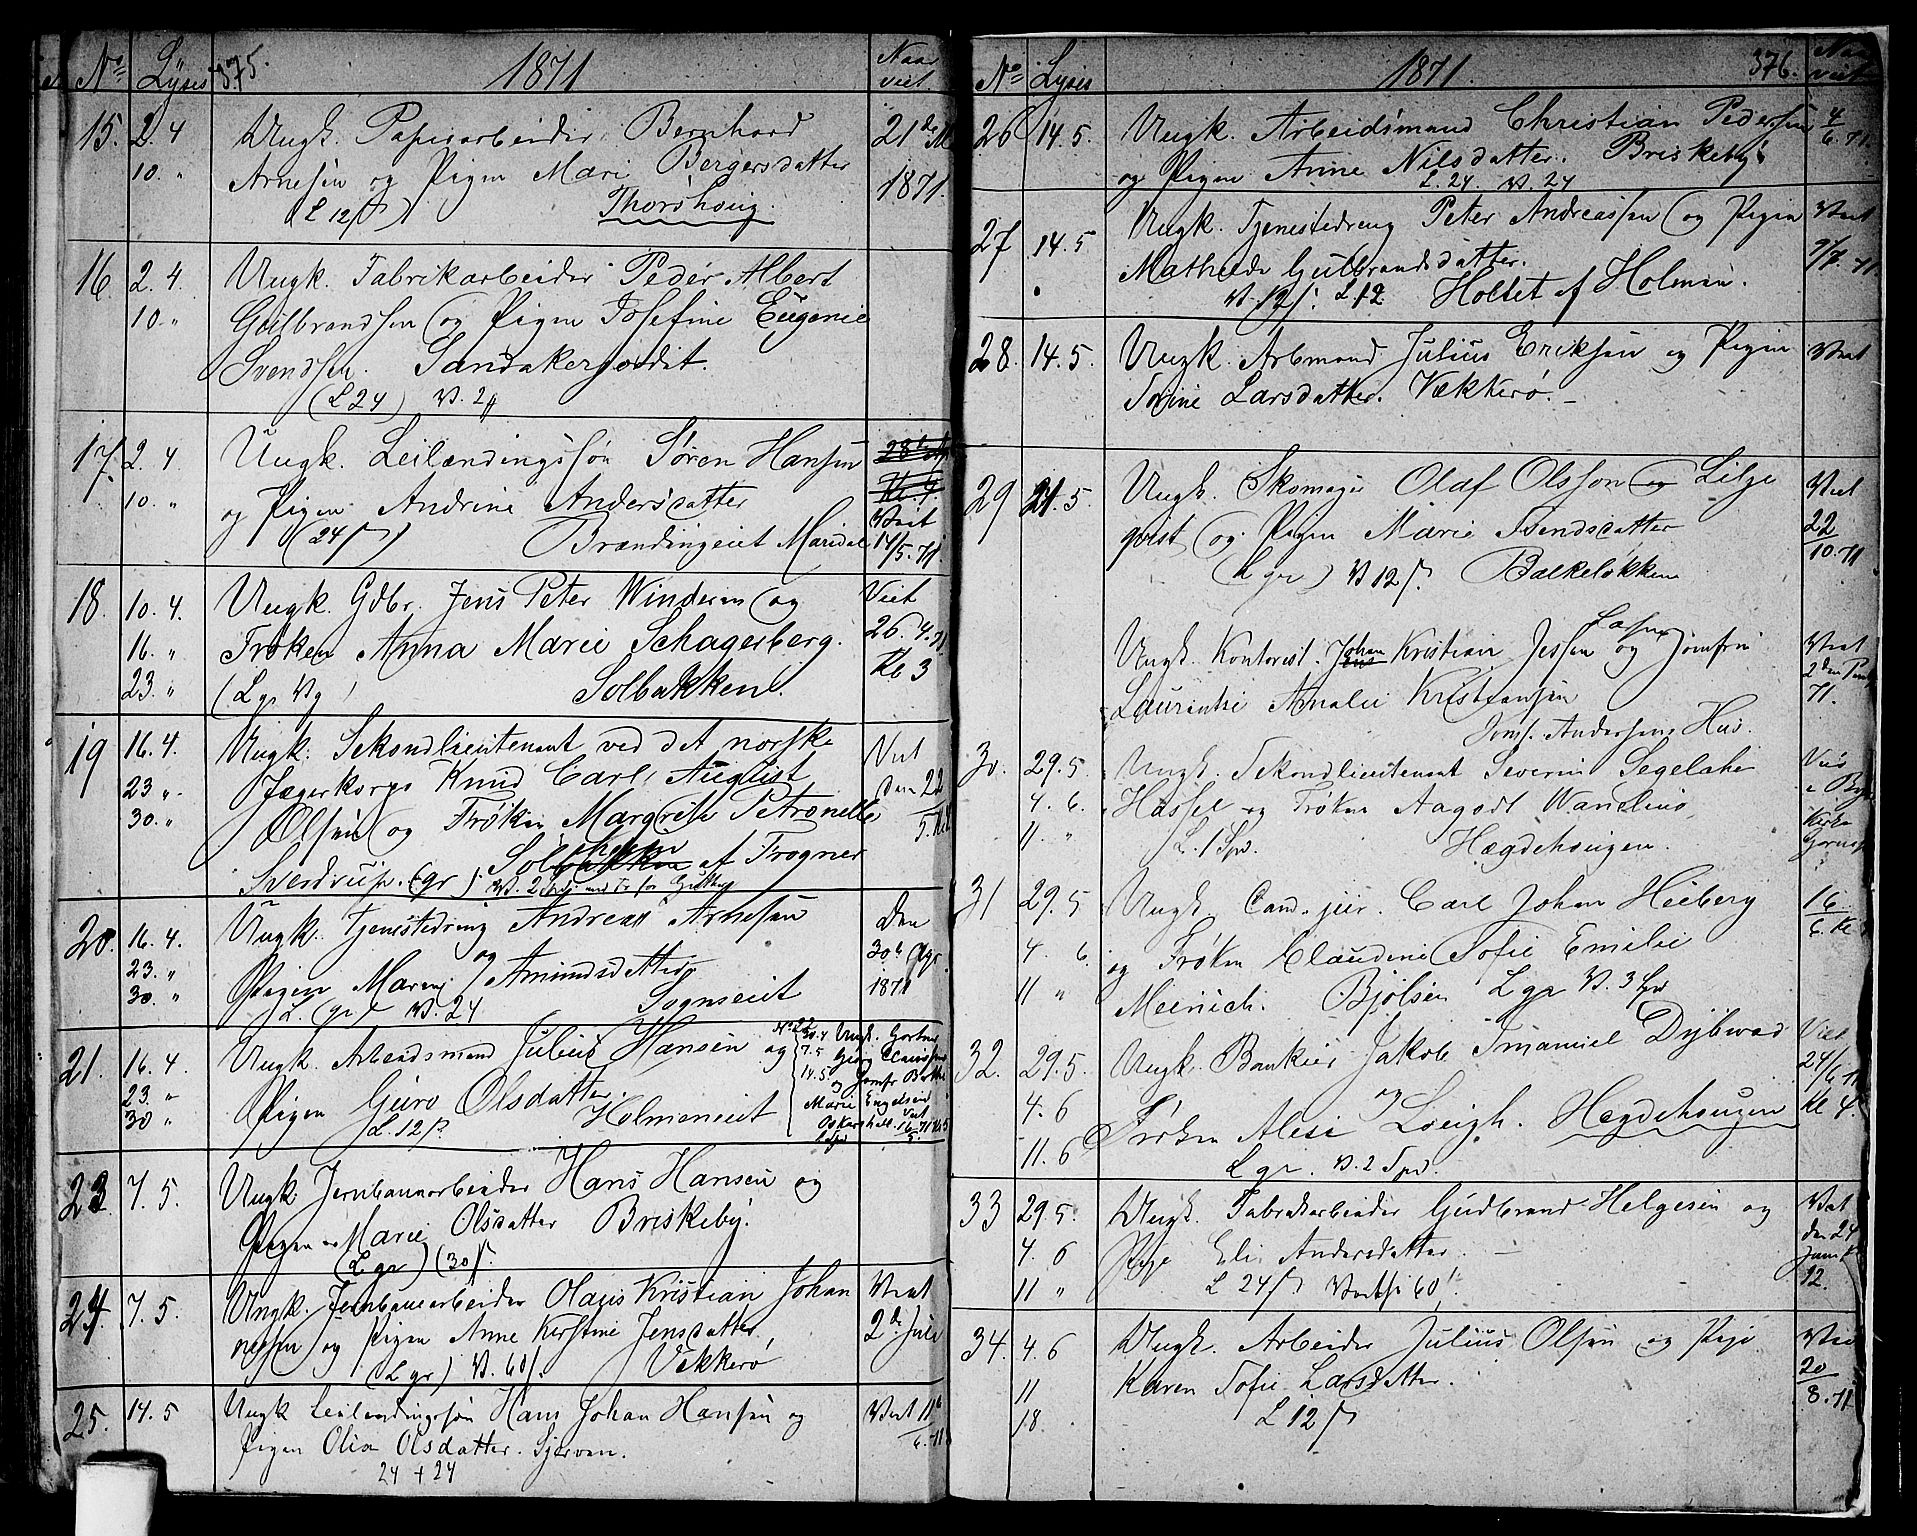 No Lyses 375. 1871 Naar viet.
15. 2. 4 Ungk. Papirarbeider Bernhard 21de
10. " Arnesen og Pigen Mari Bergersdatter 1871
(L 12 ß) Thorshoug.
16. 2. 4. Ungk. Fabrikarbeider Peder Albert
10. " Gulbrandsen og Pigen Josefine Eugenie
Svendsen. Sandakerjordet.
(L 24) V. 2
17. 2. 4 Ungk. Leilændingssøn Søren Hansen
10. " og Pigen Andrine Andersdatter Viet
(24 ß) Brændingeiet Maridal 14/5. 71
18. 10. 4 Ungk. Gdbr. Jens Peter Winderen og Viet
16. " Frøken Anna Marie Schagerberg. 26. 4. 71
23. " (L. gr. V. g ) Solbakken. Kl 3
19 16. 4. Ungk. Sekondlieutenant ved det norske Viet
23 " Jægerkorps Knud Carl August Den 22
30. " Olsen og Frøken Margrethe Petronelle 5.
Sverdrup. (gr) Solbakken af Frogner
20. 16. 4. Ungk. Tjenestedreng Andreas Arnesen Den
23. " og 30te Apr.
30. " Pigen Maren Amundsdatter 1871
L. (gr) V. 24 Sognseiet
21. 16. 4 Ungk. Arbeidsmand Julius Hansen og
23. "
30 " Pigen Guro Olsdatter.
L. 12 ß. Holmeneiet
No 22
30. 4 Ungk. Gartner
7. 5 Georg Clausen
14. 5 og Jomfr
Marie Engelsen
Oskarshall. Viet 16/5. 71
23. 7. 5. Ungk Jernbanearbeider Hans Hansen og
Pigen Marie Olsdatter Briskeby.
(L. gr) (30 ß.
24. 7. 5. Ungk. Jernbanearbeider Olaus Kristian Johan Viet
nesen og Pigen Anne Kirstine Jensdatter 2de Juli
(L gr) V. 60 ß. Vækkerø
25. 14. 5 Ungk Leilendingssøn Hans Johan Hansen og Viet 11
Pigen Olia Olsdatter. Sjerven. 6. 71
24 + 24
No Lyses 1871. 376. Naar viet
26 14. 5. Ungk. Arbeidsmand Christian Pedersen 4
og Pigen Anne Nilsdatter. Briskeby 6. 71.
L. 24. V. 24
27 14. 5 Ungk. Tjenestedreng Peter Andreassen og Pigen Viet
Mathilde Gulbrandsdatter. 9/7. 71.
V. 12 ß. L. 12 Holtet af Holmen.
28. 14. 5. Ungk. Arbmand Julius Eriksen og Pigen Viet
Torine Larsdatter. Vækkerø.
29 21. 5 Ungk. Skomager Olaf Olsson Lilje Viet
qvist og Pigen Marie Svendsdatter 22
(L gr) V 12 ß. Balkeløkken 10. 71
Ungk. Kontorist. Johan Kristian Jessen og Jomfru Viet
Laurentse Amalie Kristiansen 71.
Jomf. Andersens Hus.
30. 29. 5 Ungk. Sekondlieutenant Severin Segelcke
4. 6. Hassel og Frøken Aagodt Wandeus
11. " L. 1 Spd. Hægdehougen. Kirke
31 29. 5 Ungk. Cand. jur. Carl Johan Heiberg 16
4. 6. og Frøken Claudine Sofie Emilie 6.
11 " Meinich. Bjølsen L gr V. 3 Spd
32. 29. 5. Ungk. Bankier Jakob Imanuel Dybwad Viet
4. 6 og 24/6 71
11. 6 Frøken Alesi Leigh. Hegdehougen Kl 4.
L gr. V. 2 Spd.
33 29. 5. Ungk. Fabrikarbeider Gudbrand Helgesen og Viet
4. 6 Pige Eli Andersdatter. den 24
11 " L 24 ß 60 12.
34. 4. 6 Ungk. Arbeider Julius Olsen og Pige Viet
11 Karen Sofie Larsdatter. 20
18. L 12 ß 8. 71